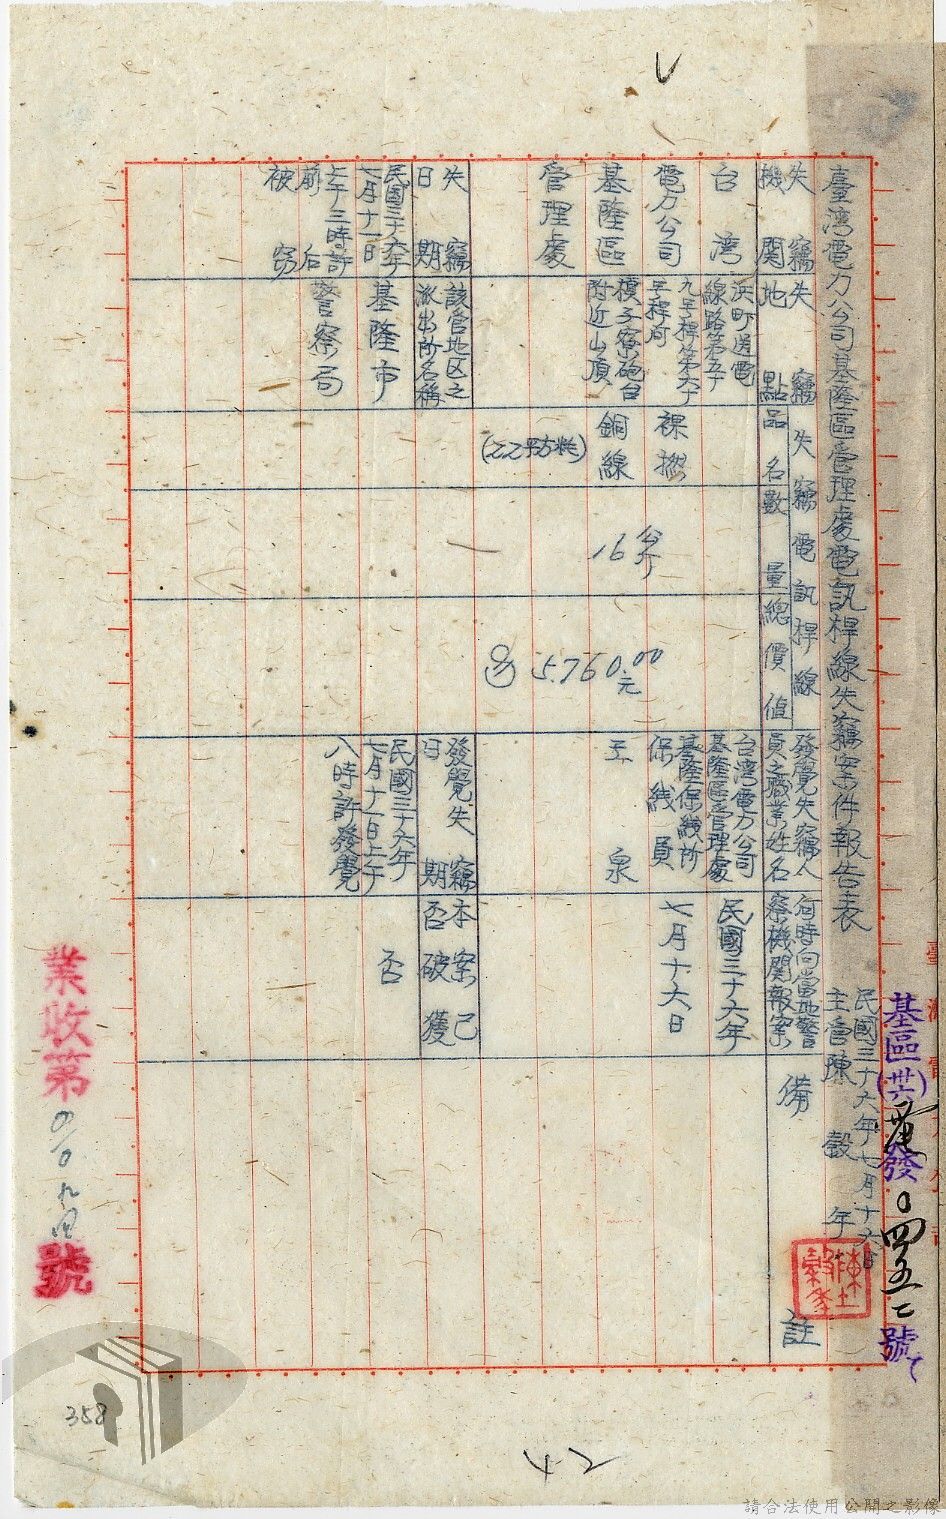 臺灣電力公司基隆區管理處電訊桿線失竊案件報告表
民國三十六年七月十六日
主管陳毅年
基區(卅六)發0四五二號
失竊機關
失竊地點
失竊電訊桿線
品名
數量
總價值
發覺失竊人員之職業姓名
何時向當地警察機關報案
備註
台灣
電力公司
基隆區
管理處
浜町送電
線路第五十
九号桿第六十
号桿間
槓子寮砲台
附近山頂
裸撚
銅線
(22平方粍)
公斤
16
5.760.00
元
台湾電力公司
基隆區管理處
基隆保線所
保线員
王泉
民國三十六年
七月十六日
失竊
日期
民國三十六年
七月十一日
上午三時許
前后
被窃
該管地区之
派出所名稱
基隆市
警察局
發覺失竊
日期
民國三十六年
七月十一日上午
八時許發覺
本案已
否破獲
否
業收第
號
358
請合法使用公開之影像